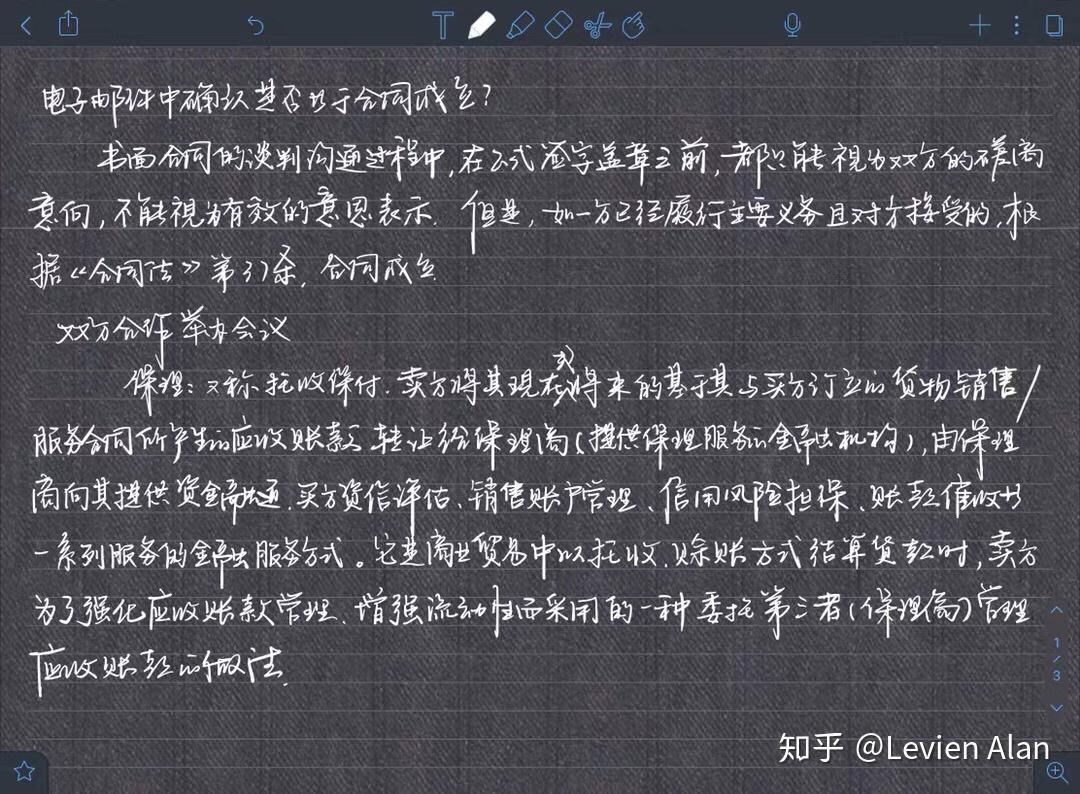 电子邮件中确认是否等于合同成立?
书面合同的谈判沟通过程中,在正式签字盖章之前,都只能视为双方的磋商
意向,不能视为有效的意思表示. 但是,如一方已经履行主要义务且对方接受的,根
据《合同法》第37条,合同成立
双方合作举办会议
保理:又称托收保付.卖方将其现在或将来的基于其与买方订立的货物销售/
服务合同所产生的应收账款转让给保理商(提供保理服务的金融机构),由保理
商向其提供资金融通、买方资信评估、销售账户管理、信用风险担保、账款催收等
一系列服务的金融服务方式。它是商业贸易中以托收、赊账方式结算货款时,卖方
为了强化应收账款管理、增强流动性而采用的一种委托第三者(保理商)管理
应收账款的做法.
1/3
知乎 @Levien Alan